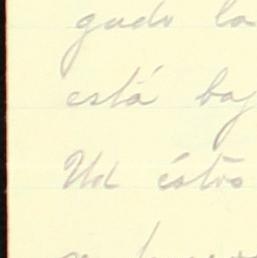 gado la
está baj
Ud éstos